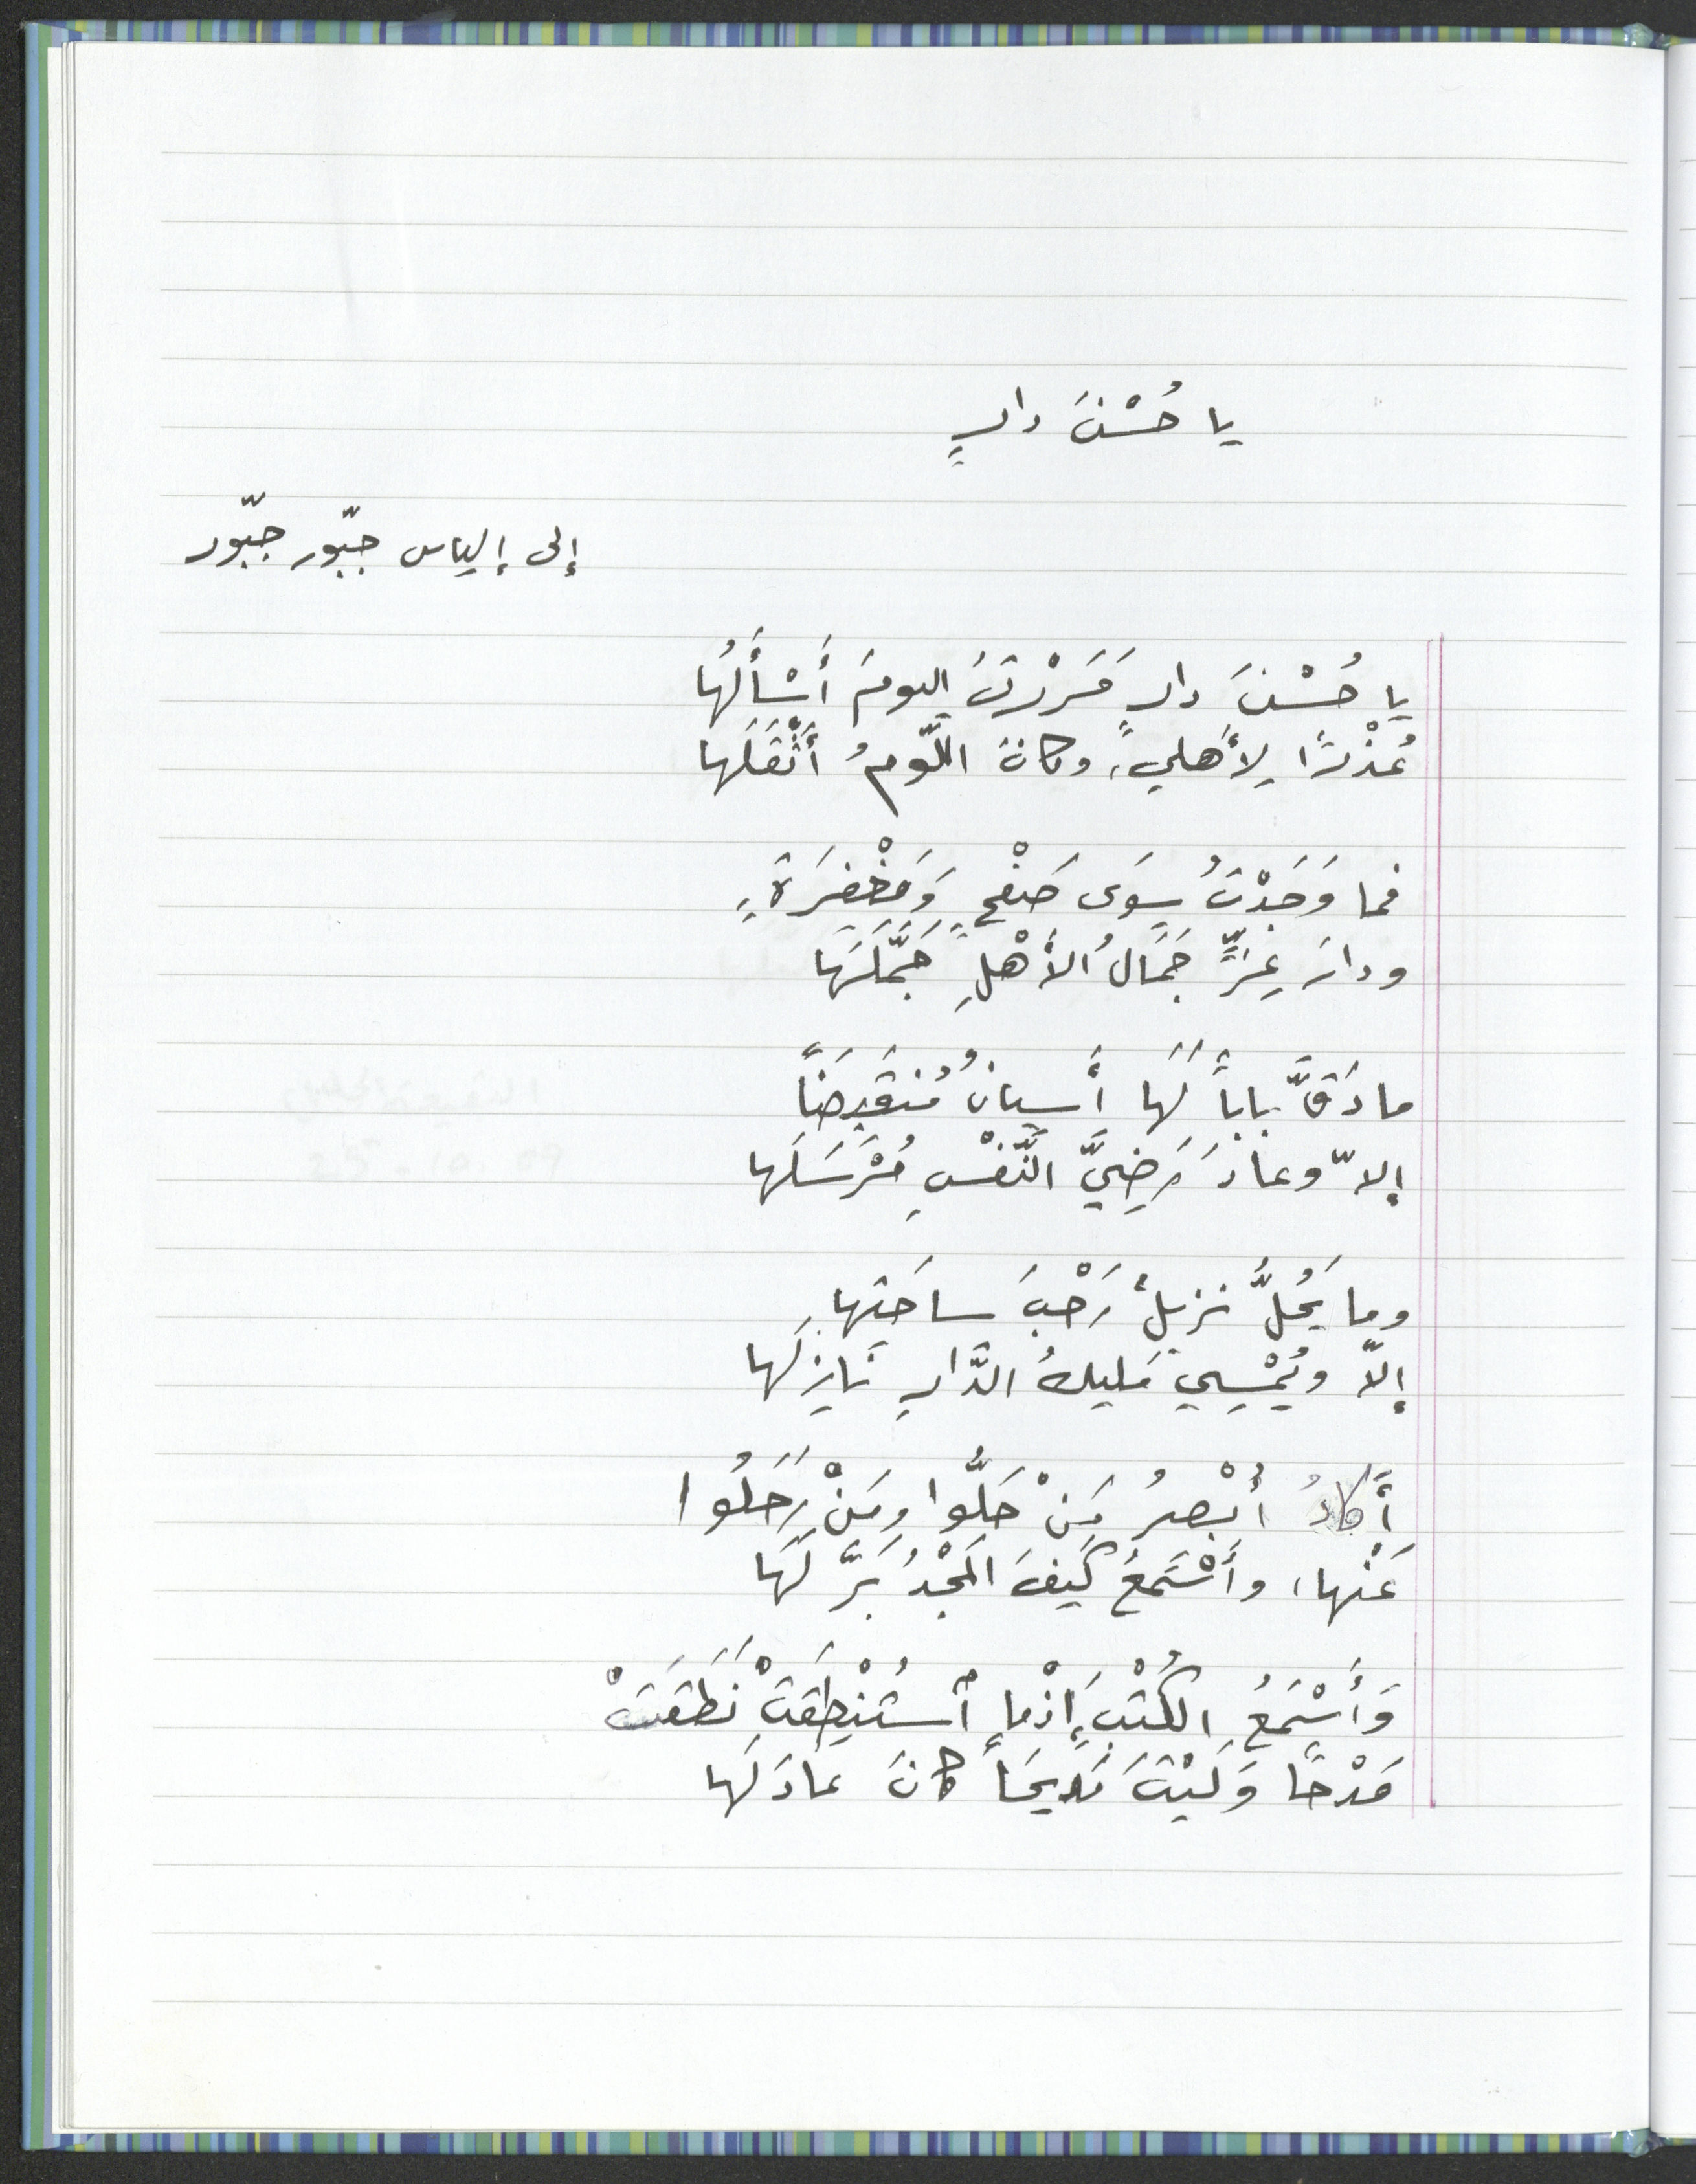 يا حُسْنَ دارٍ
إلى إلياس جبّور جبّور
يا حُسْنَ دارٍ مَرَرْتُ اليومَ أَسْأَلُها
عُذْرًا لِأَهلي، وكانَ اللّومُ أَثْقَلَها
فما وَجَدْتُ سِوَى صَفْحٍ وَمَغْفِرَةٍ
ودارَ عِزٍّ جَمَالُ الأَهْلِ جَمَّلَها
ما دَقَّ باباً لَها أَسيانُ مُنقَبِضًا
إلاّ وعادَ رَضِيَّ النَّفْسِ مُرْسَلَها
وما يَحُلُّ نزيلٌ رَحْبَ ساحَتِها
إلاّ ويُمْسِي مَليكُ الدَّارِ نازِلَها
أَكادُ أُبْصِرُ مَنْ حَلُّوا ومَنْ رَحَلُوا
عَنْها، وأَسْمَعُ كَيفَ المَجْدُ بَرَّ لَها
وَأَسْمَعُ الكُتْبَ إِذْما اسْتُنْطِقَتْ نَطَقَتْ
مَدْحًا وَلَيْتَ مَديحَاً كانَ عادَلَها